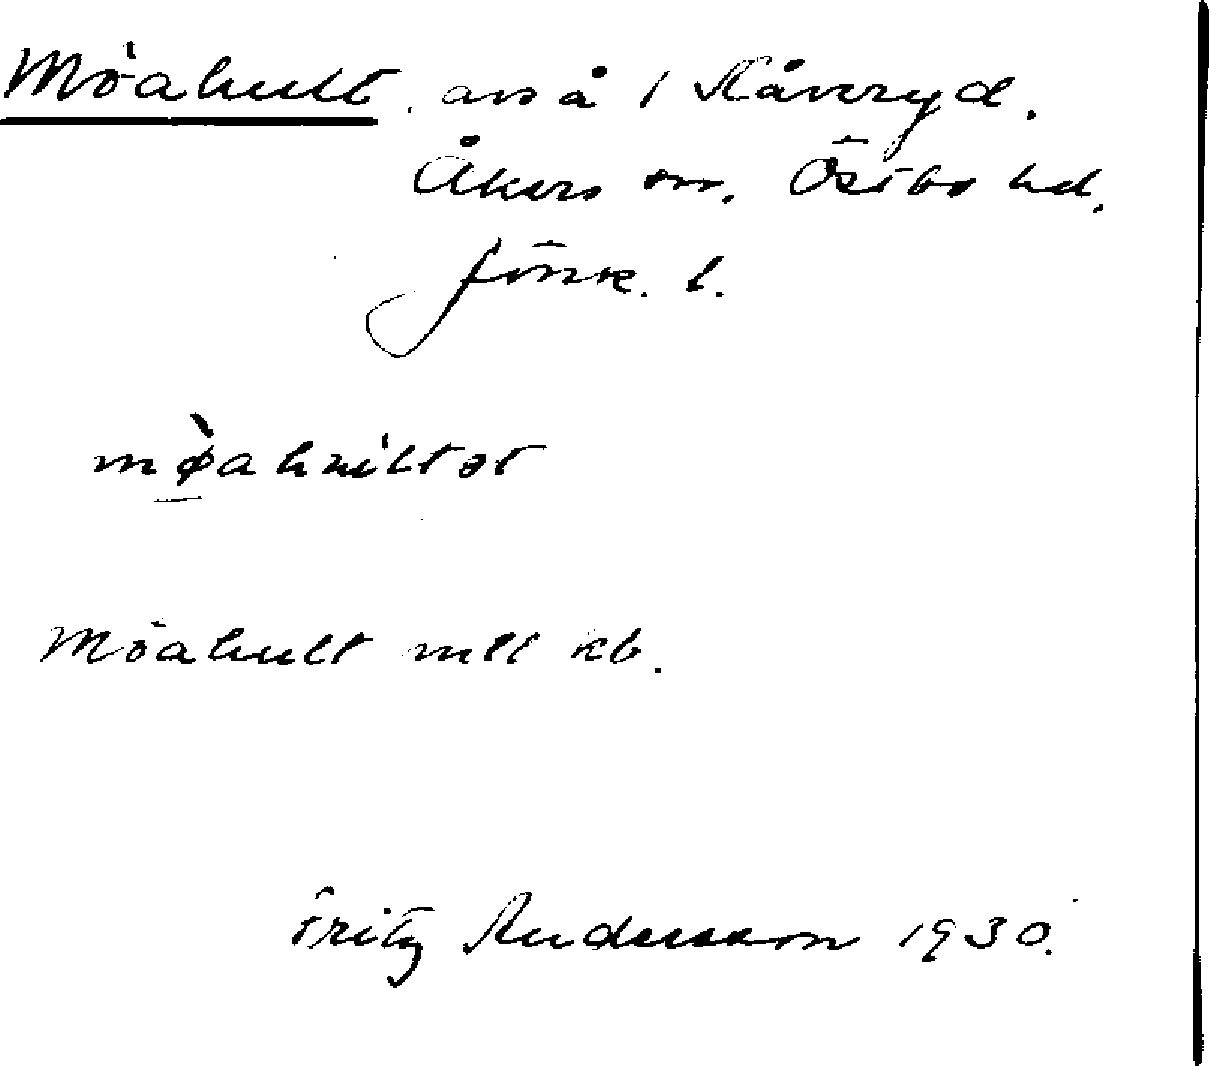 Möahult, avs å 1 Råveryd.
Åkers sn. Östbo hd.
Jönk. l.
mø̀ahultət
Möahult mtl kb.
Fritz Andersson 1930.